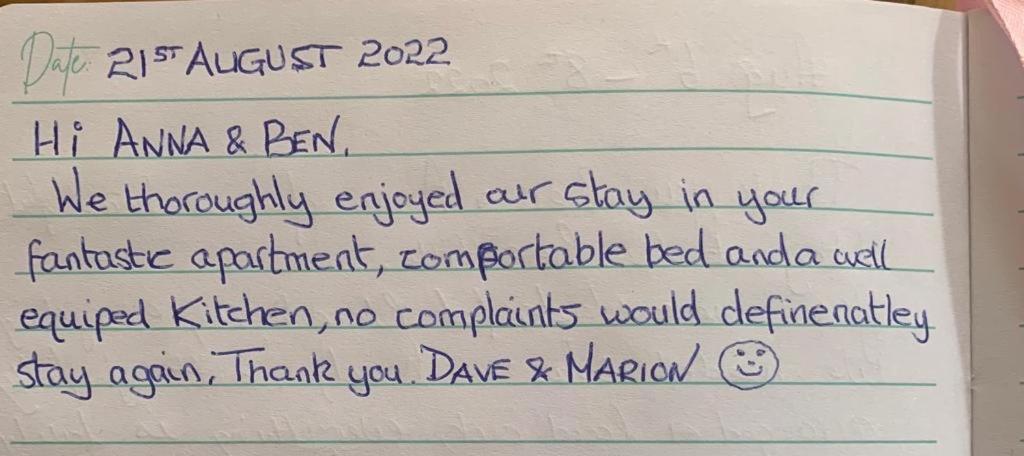 Date: 21ST AUGUST 2022
Hi ANNA & BEN,
We thoroughly enjoyed our stay in your
fantastic apartment, comfortable bed and a well
equiped Kitchen, no complaints would definenatley
stay again. Thank you. DAVE & MARION